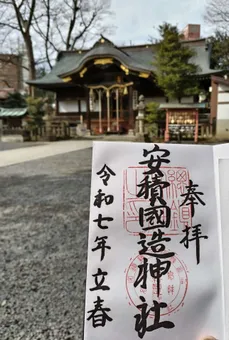 奉拝
安積國造神社
令和七年立春